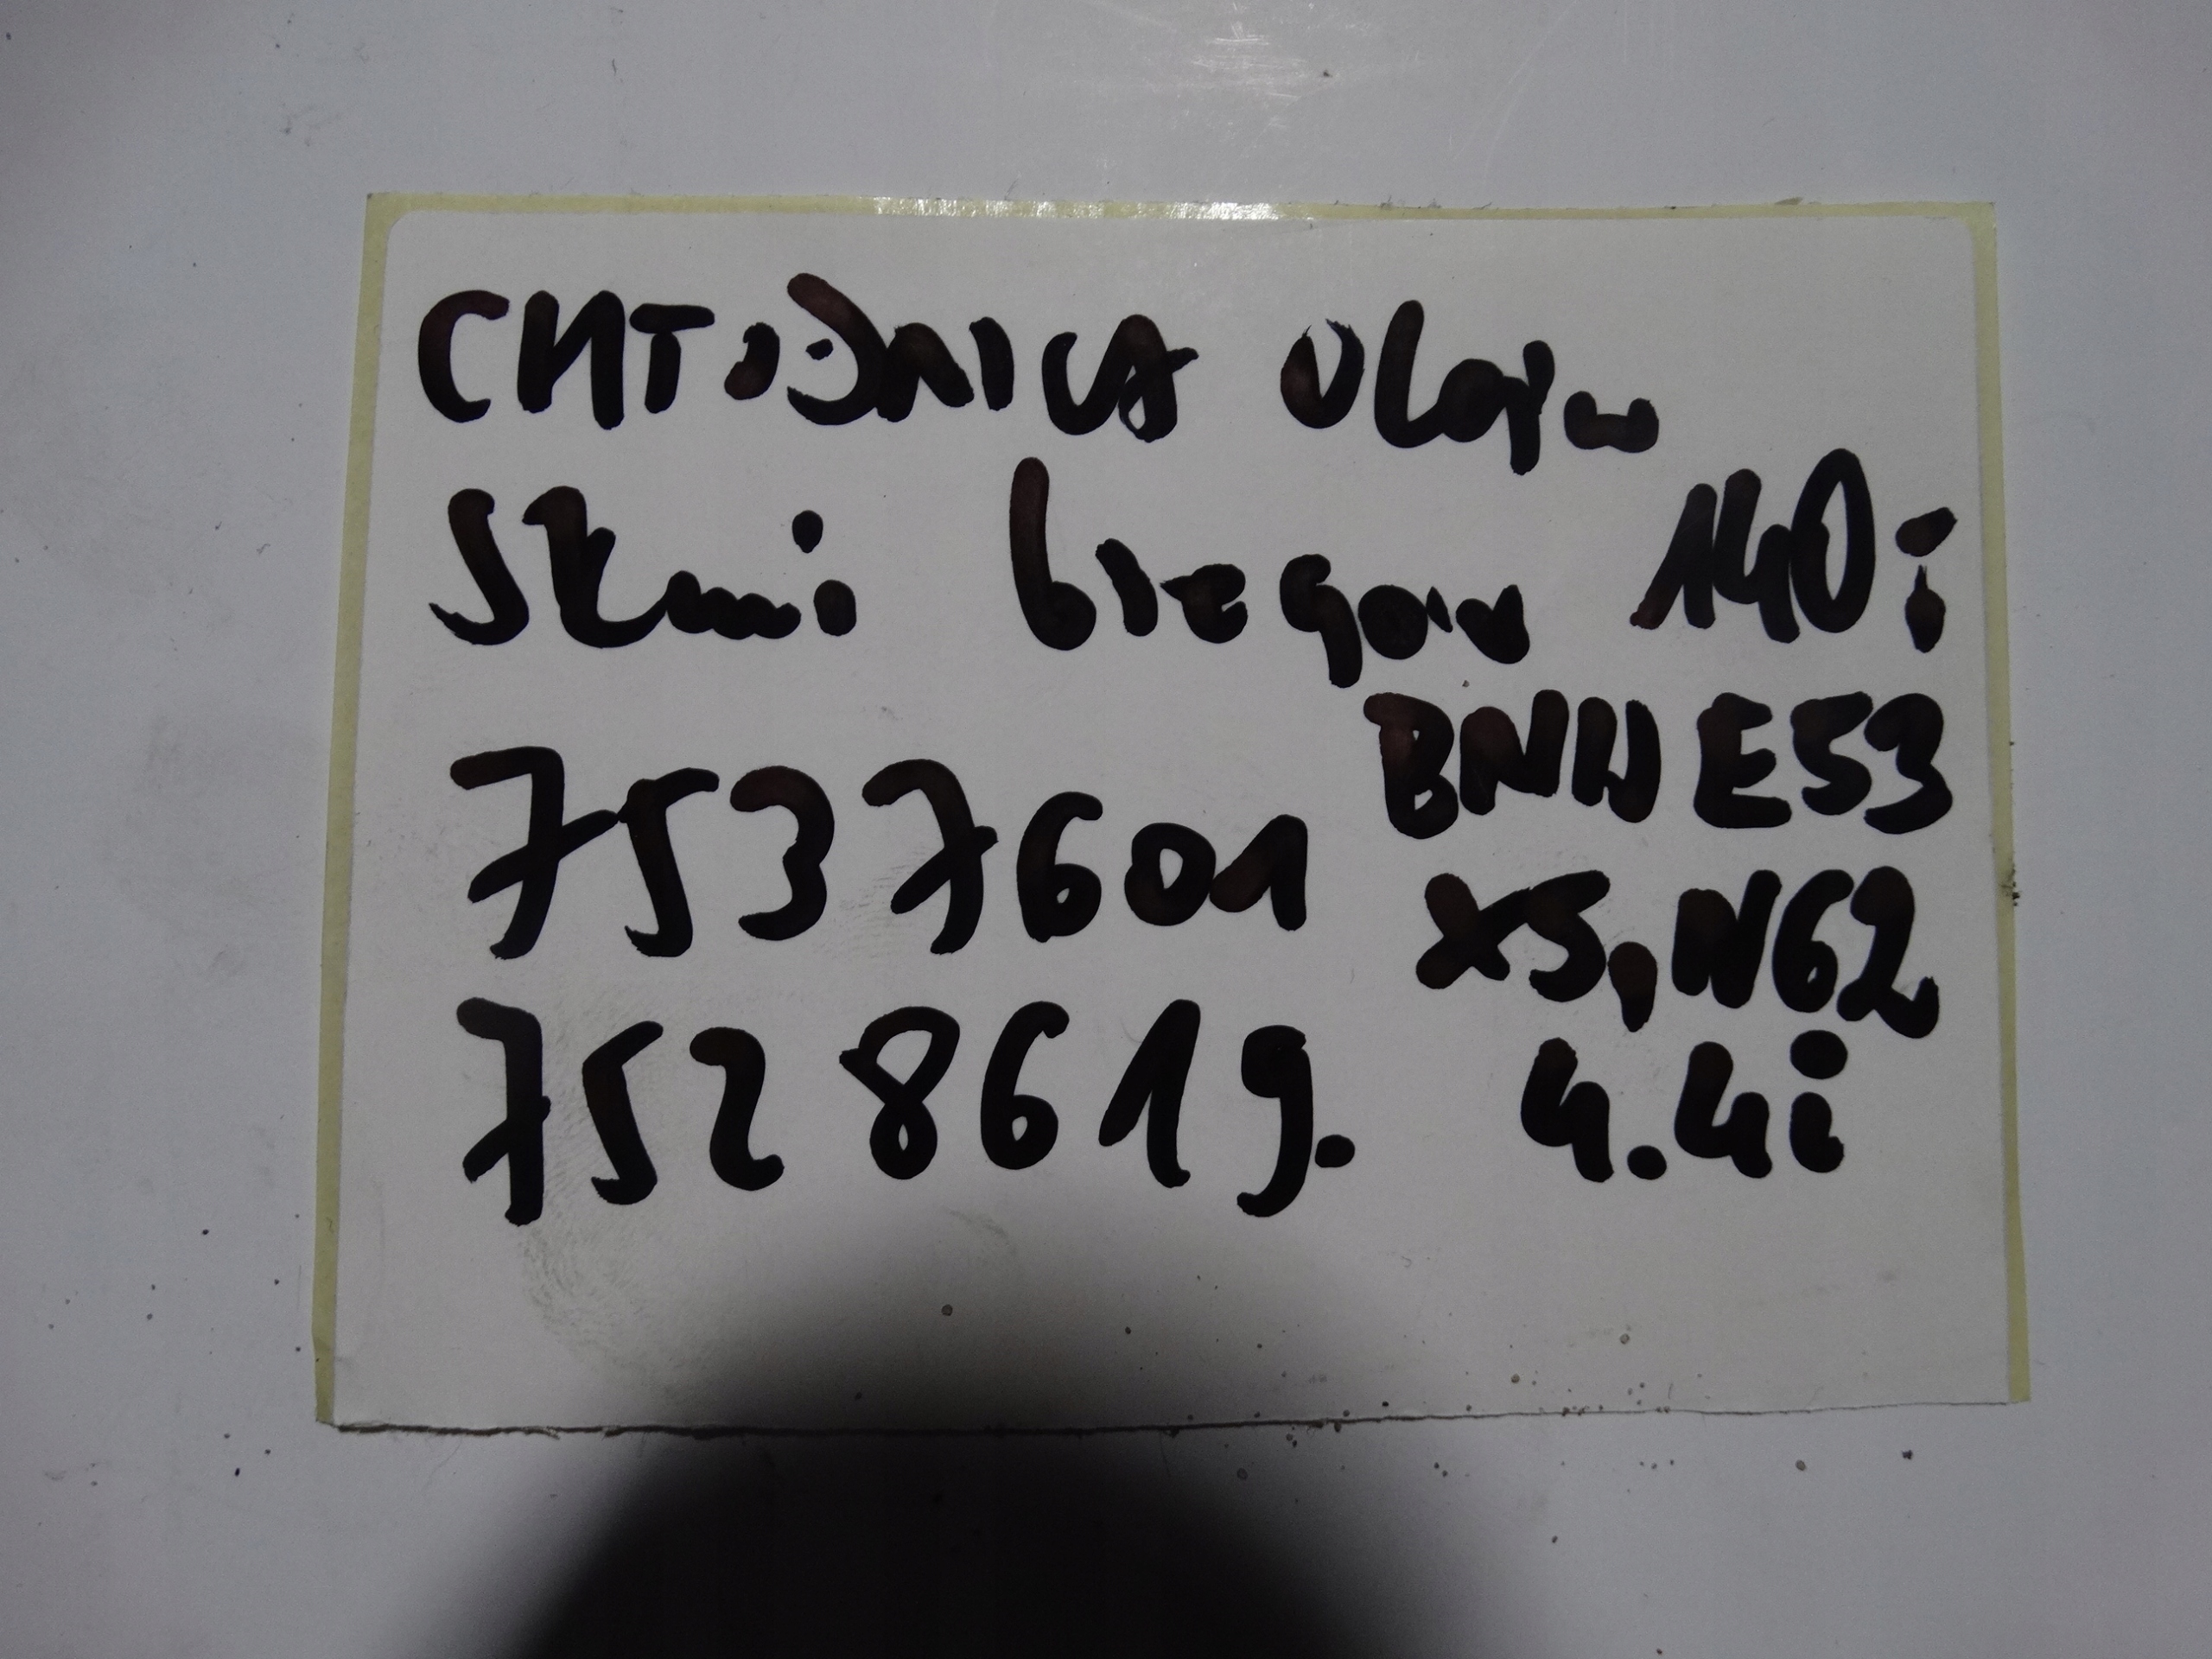 CHŁODNICA OLEJU
SKRZYNI BIEGÓW 140;
7537601 BMW E53
X5, N62
7528619. 4.4i